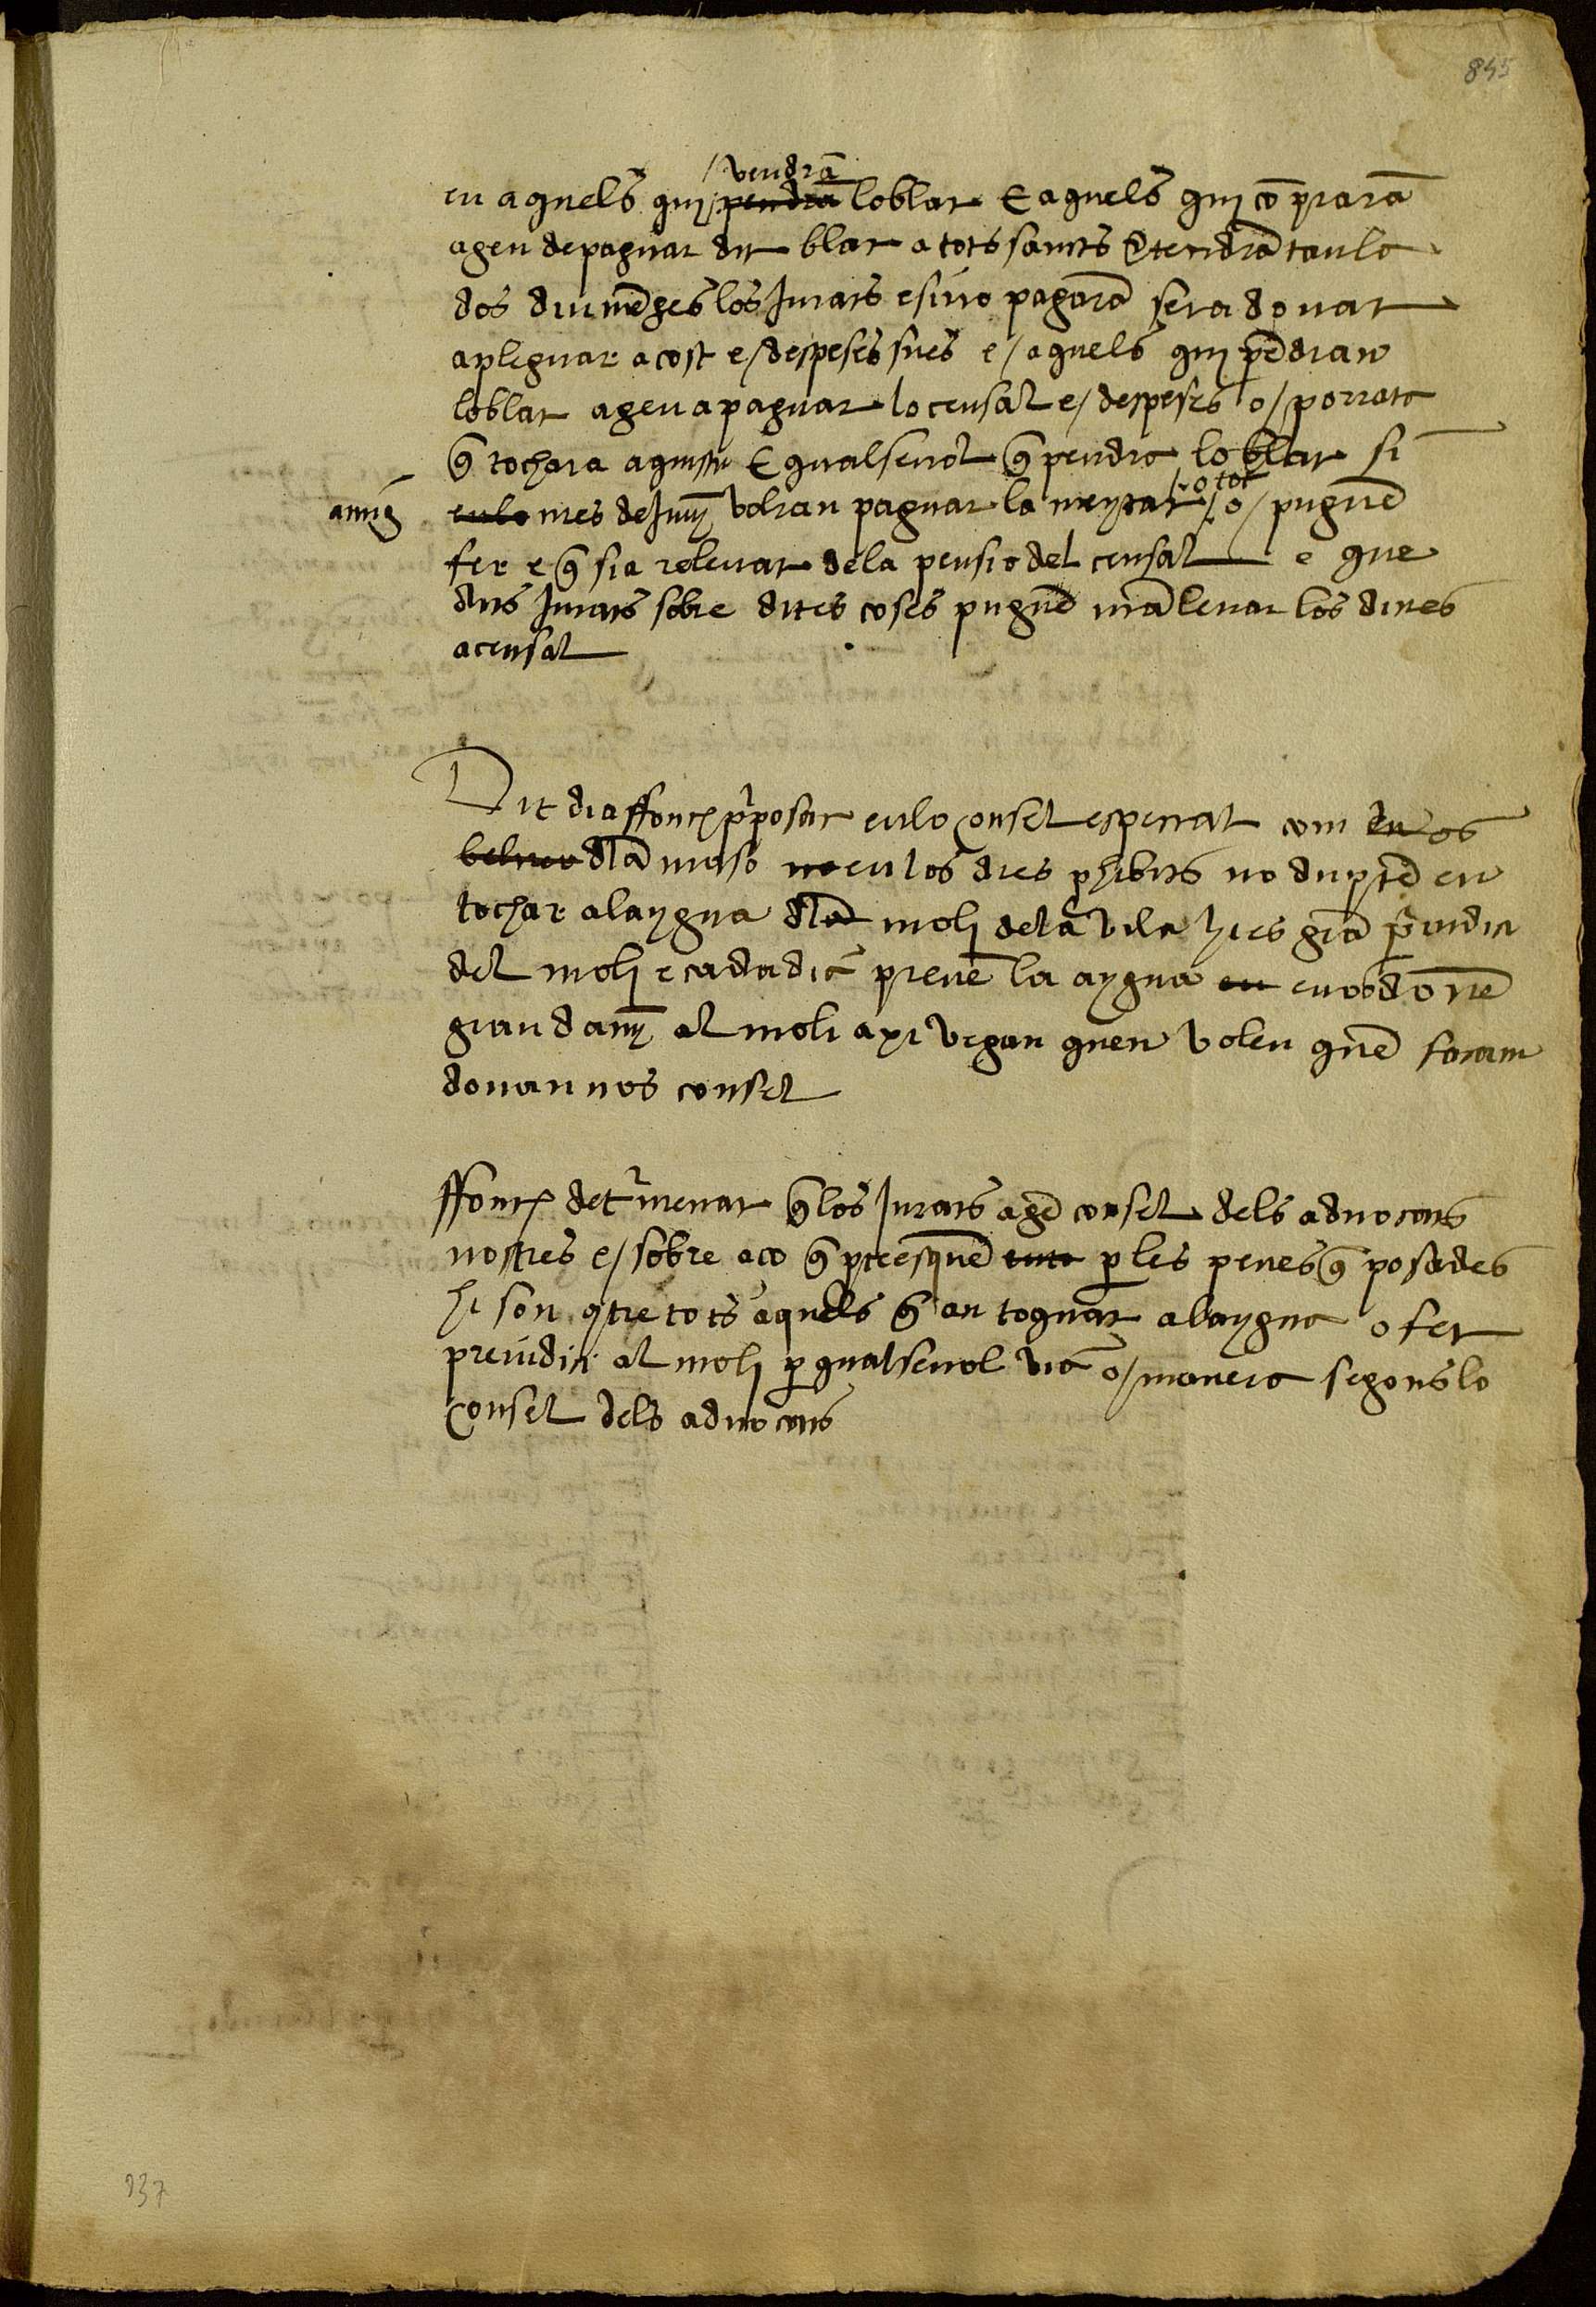 845
vendrã
en aquels quj pendrã loblat E aquels quj cõpraran
agen depaguar dit blat a tots sancts E tendrã taula
dos diumẽges los Jurats e sino pagarã sera donat
a pleguar a cost e/ despeses sues e/ aquels quj pẽdran
loblat agen a paguar lo censal e/ despeses o/ porrata
q̃ tochara aquistu E qualsevol q̃ pendra lo blat si
o tot
amig en lo mes de Juny volran paguar la meytat / o/ puguẽ
fer e q̃ sia relevat dela pensio del censal e que
dits Jurats sobre dites coses puguẽ mãlevar los dines
a censal
Dit dia ffonch p̃posat en lo consel esperrat com en
dlã maso no en los dies phibits no duptẽ en
tochar a laygua dla moli dela vila hi es grã p̃iudici
del moli e cada dia prenẽ la aygua en en os donẽ
gran dany al moli axi vegan quen volen quẽ faram
donau nos consel
ffonch det'menat q̃ los Jurats agẽ consel dels advocats
nostres e/ sobre aco q̃ p̃ceesquẽ p̃ les penes q̃ posades
hi son q̃tre tots aquels q̃ an toquat a laygua o fet
preiudici al molj p̃ qualsevol via o/ manera segons lo
consel dels advocats
937